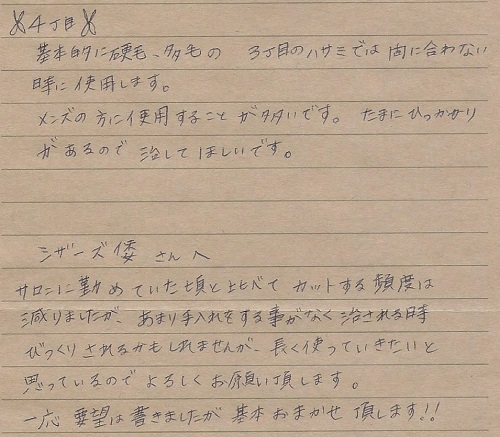 4丁目
基本的に硬毛、多毛の 3丁目のハサミでは間に合わない
時に使用します。
メンズの方に使用することが多いです。たまにひっかかり
があるので治してほしいです。
シザーズ倭さんへ
サロンに勤めていた頃と比べてカットする頻度は
減りましたが、あまり手入れをする事がなく治される時
びっくりされるかもしれませんが、長く使っていきたいと
思っているのでよろしくお願い頂します。
一応要望は書きましたが基本おまかせ頂します!!